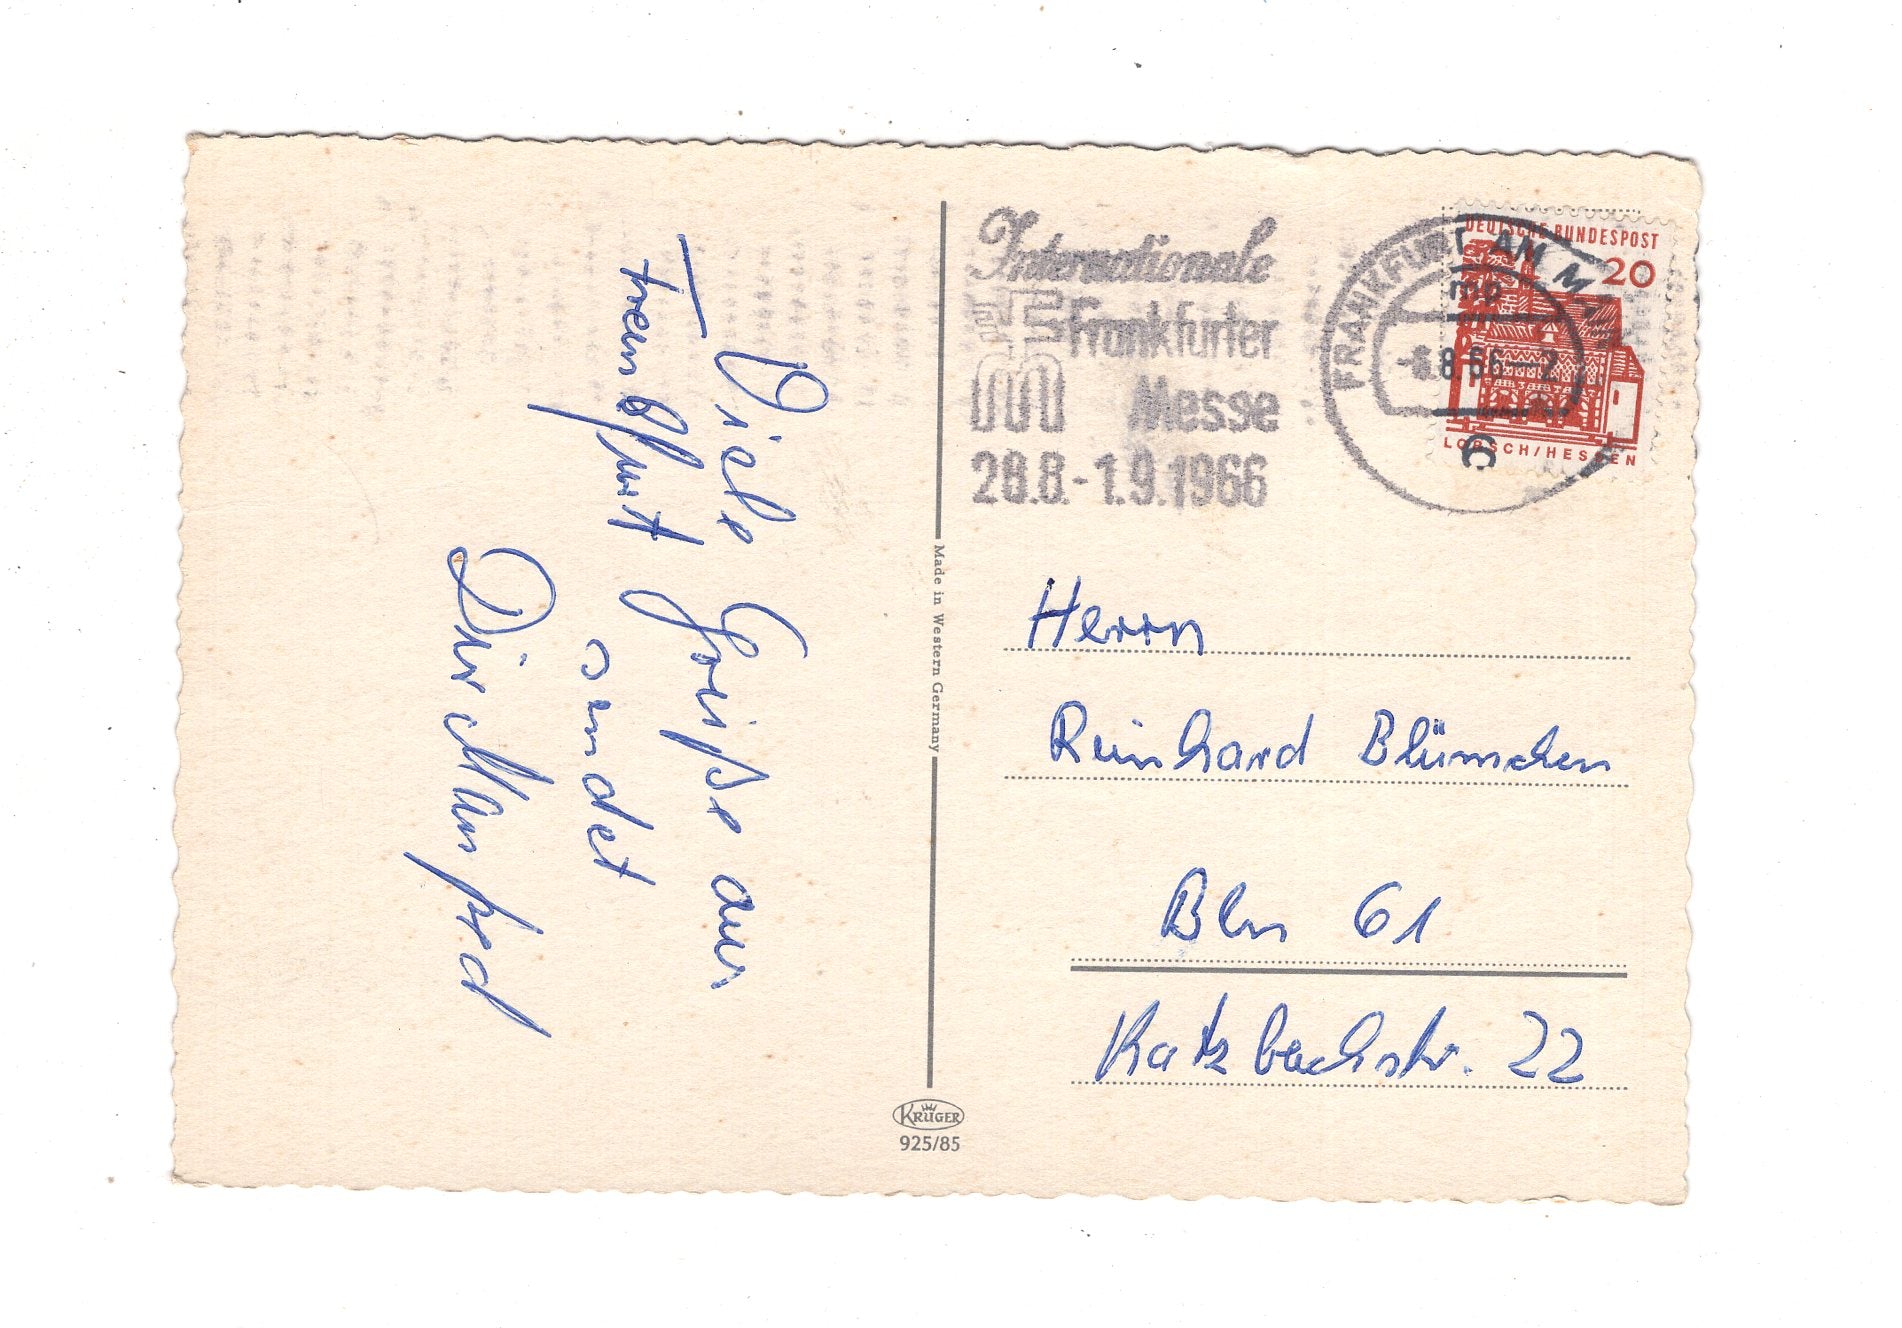 Viele Grüße aus
Frankfurt
sendet
Dir Manfred
Made in Western Germany
KRÜGER
925/85
Internationale
Frankfurter
Messe
28.8.-1.9.1966
FRANKFURT AM M.
mp
8.66
6
DEUTSCHE BUNDESPOST
20
LORSCH/HESSEN
Herrn
Reinhard Blümchen
Bln 61
Katzbachstr. 22